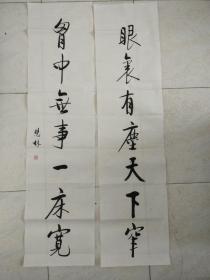 眼裏有塵天下窄
胷中無事一床寬